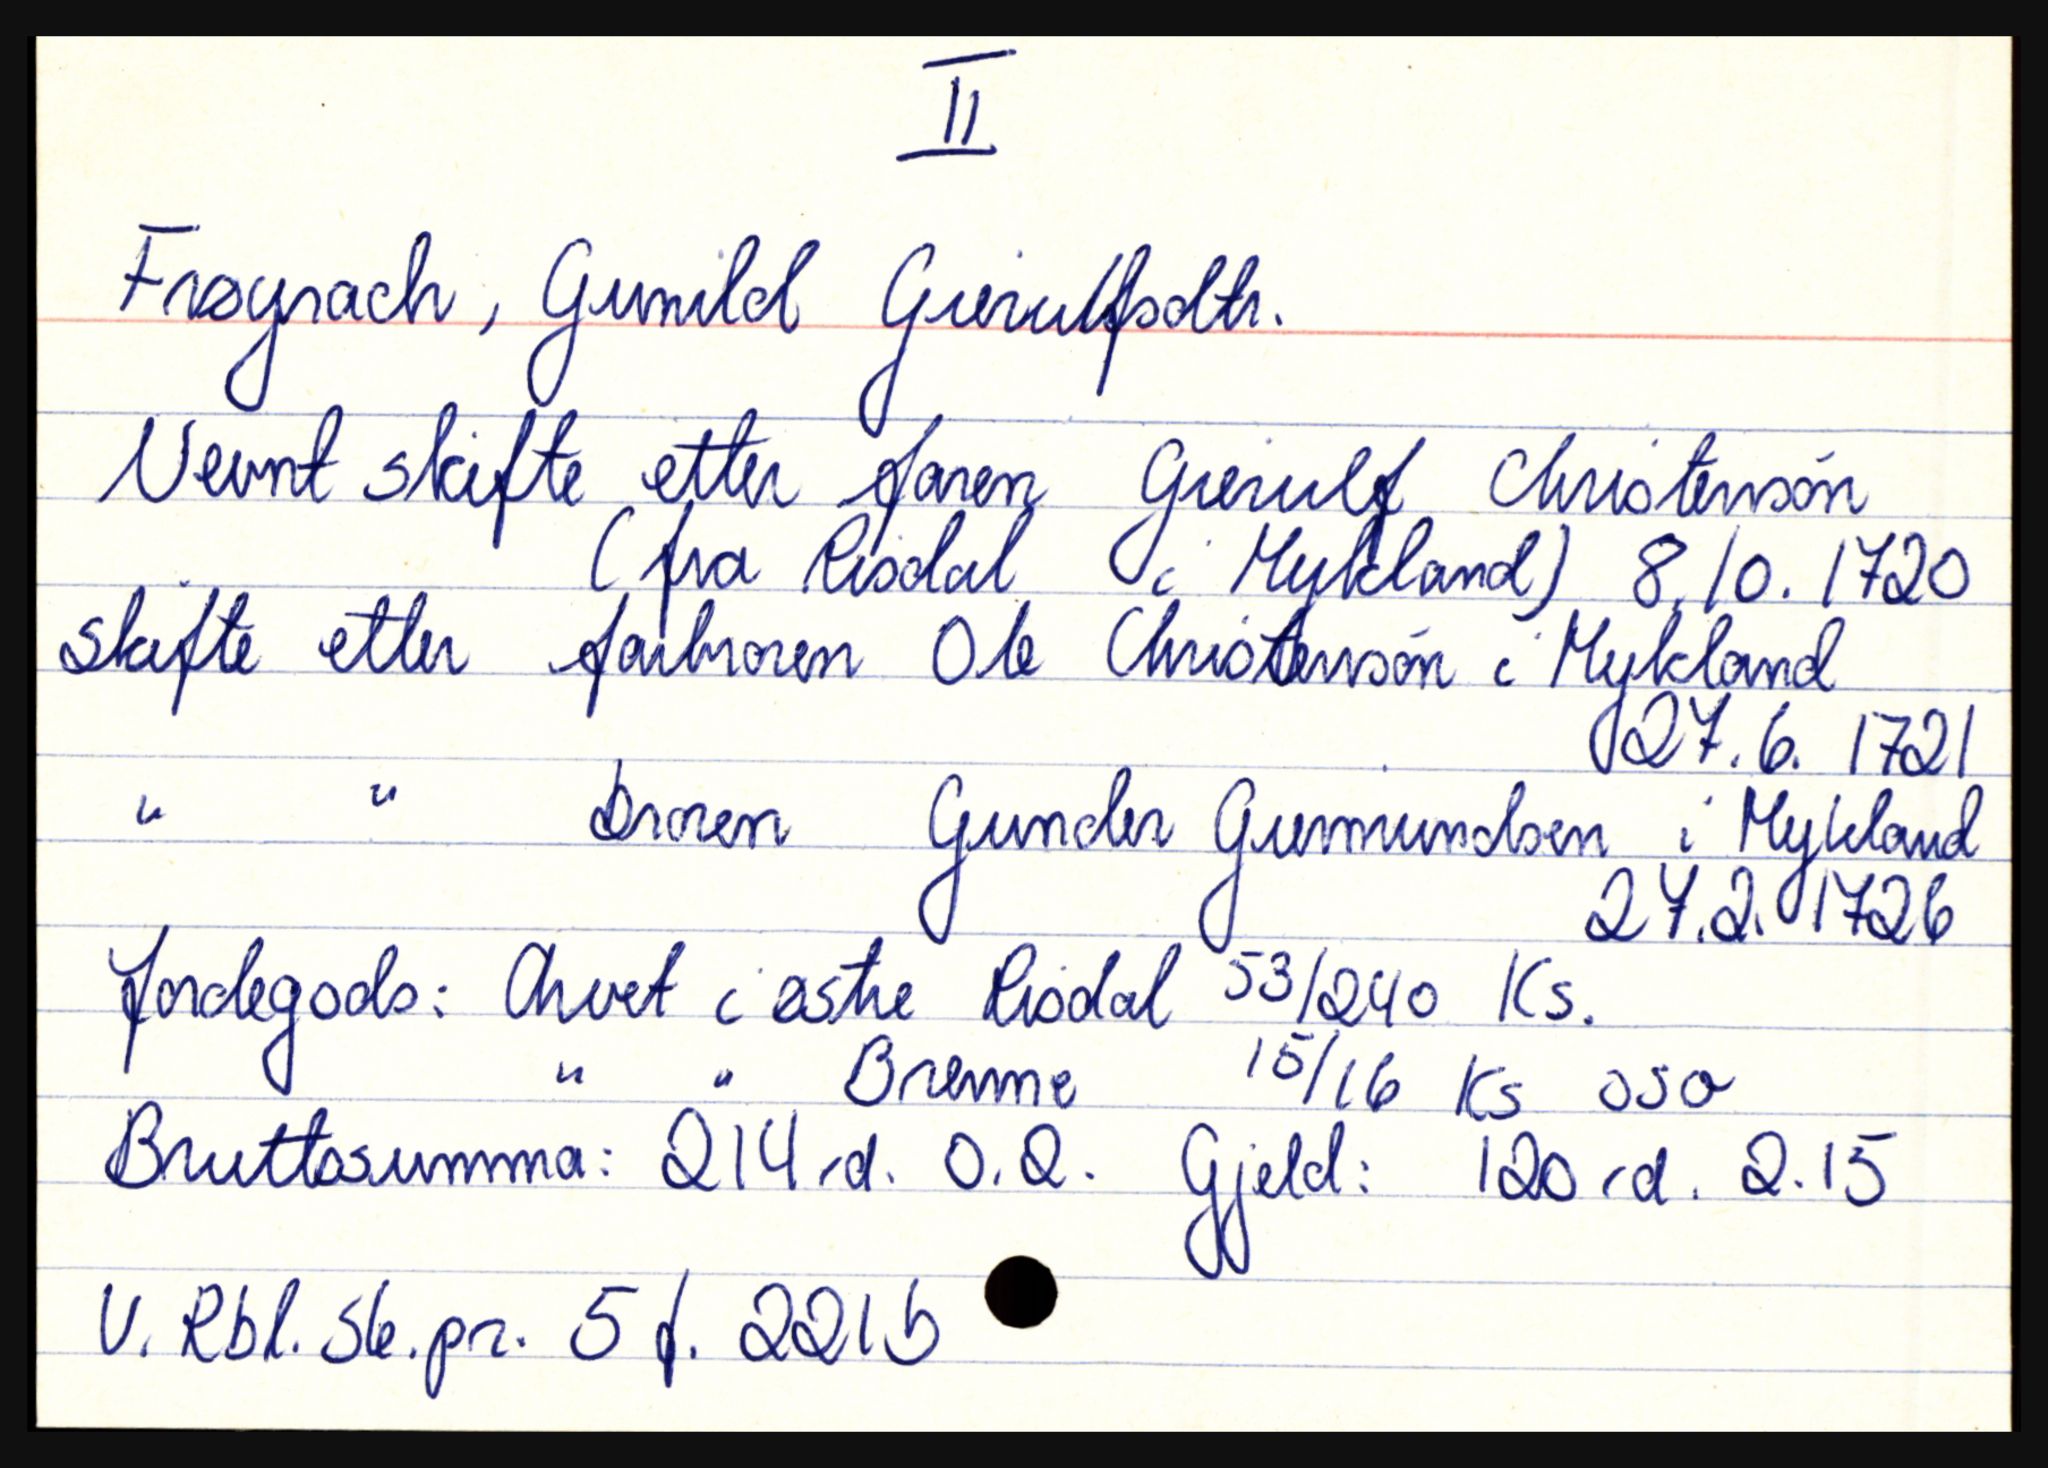 II
Frøyrach, Gunild Gierulfsdtr.
Nevnt skifte etter faren Gierulf Christensøn
(fra Risdal i Mykland) 8.10.1720
skifte etter farbroren Ole Christensøn i Mykland
27.6. 1721
" " broren Gunder Giermundsen i Mykland
27.2. 1726
Jordegods: Arvet i østre Risdal 53/240 Ks.
" " Brenne 15/16 Ks oso
Bruttosumma: 214 rd. 0.2. Gjeld: 120 rd. 2.15
V. Rbl. sk.pr. 5 f. 221b